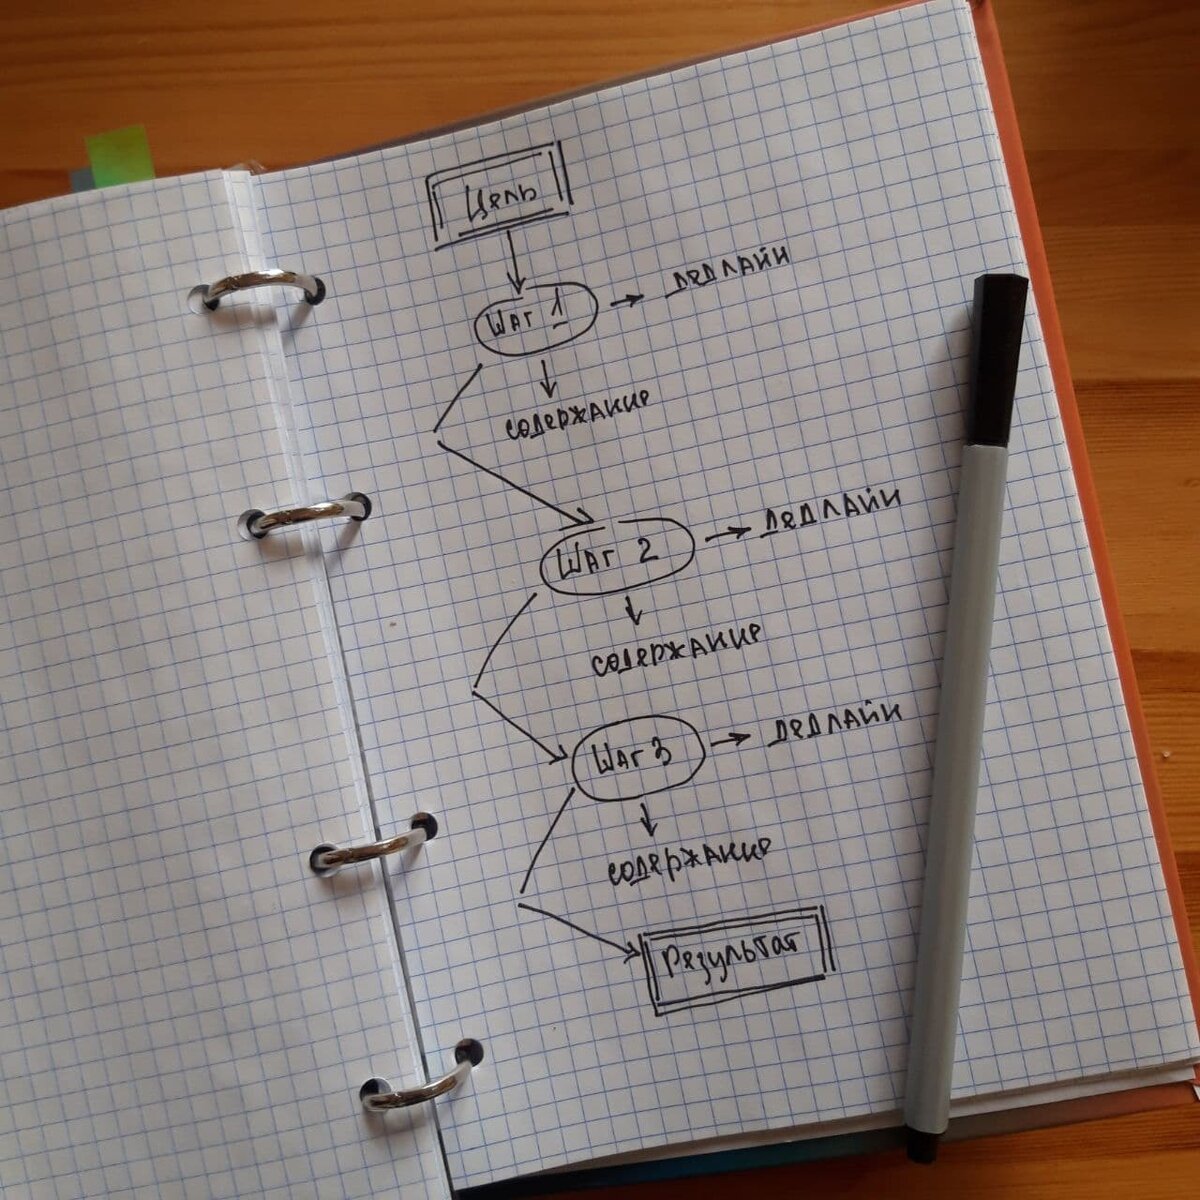 Цель
Шаг 1 → дедлайн
содержание
Шаг 2 → дедлайн
содержание
Шаг 3 → дедлайн
содержание
Результат